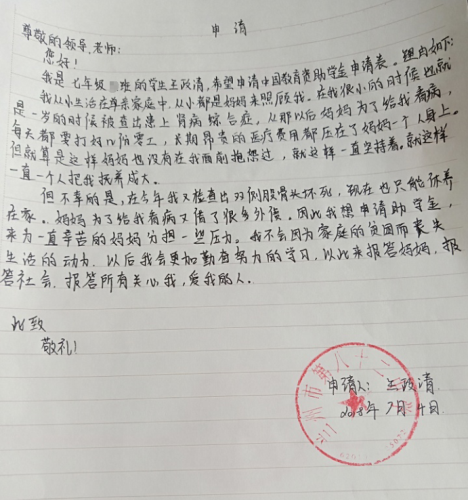 申请
尊敬的领导、老师:
您好!
我是七年级 班的学生王政清,希望申请中国教育资助学金申请表。理由如下:
我从小生活在单亲家庭中,从小都是妈妈来照顾我。在我很小的时候也就
是一岁的时候被查出患上肾病综合症,从那以后妈妈为了给我看病,
每天都要打好几份零工,长期昂贵的医疗费用都压在了妈妈一个人身上。
但就算是这样妈妈也没有在我面前抱怨过,就这样一直坚持着。就这样
一直一个人把我抚养成大。
但不幸的是,在今年我又检查出双侧股骨头坏死,现在也只能休养
在家。妈妈为了给我看病又借了很多外债。因此我想申请助学金,
来为一直辛苦的妈妈分担一些压力。我不会因为家庭的贫困而丧失
生活的动力,以后我会更加勤奋努力的学习,以此来报答妈妈,报
答社会,报答所有关心我,爱我的人。
此致
敬礼!
兰州市第八十二中学
申请人:王政清
2018年7月4日